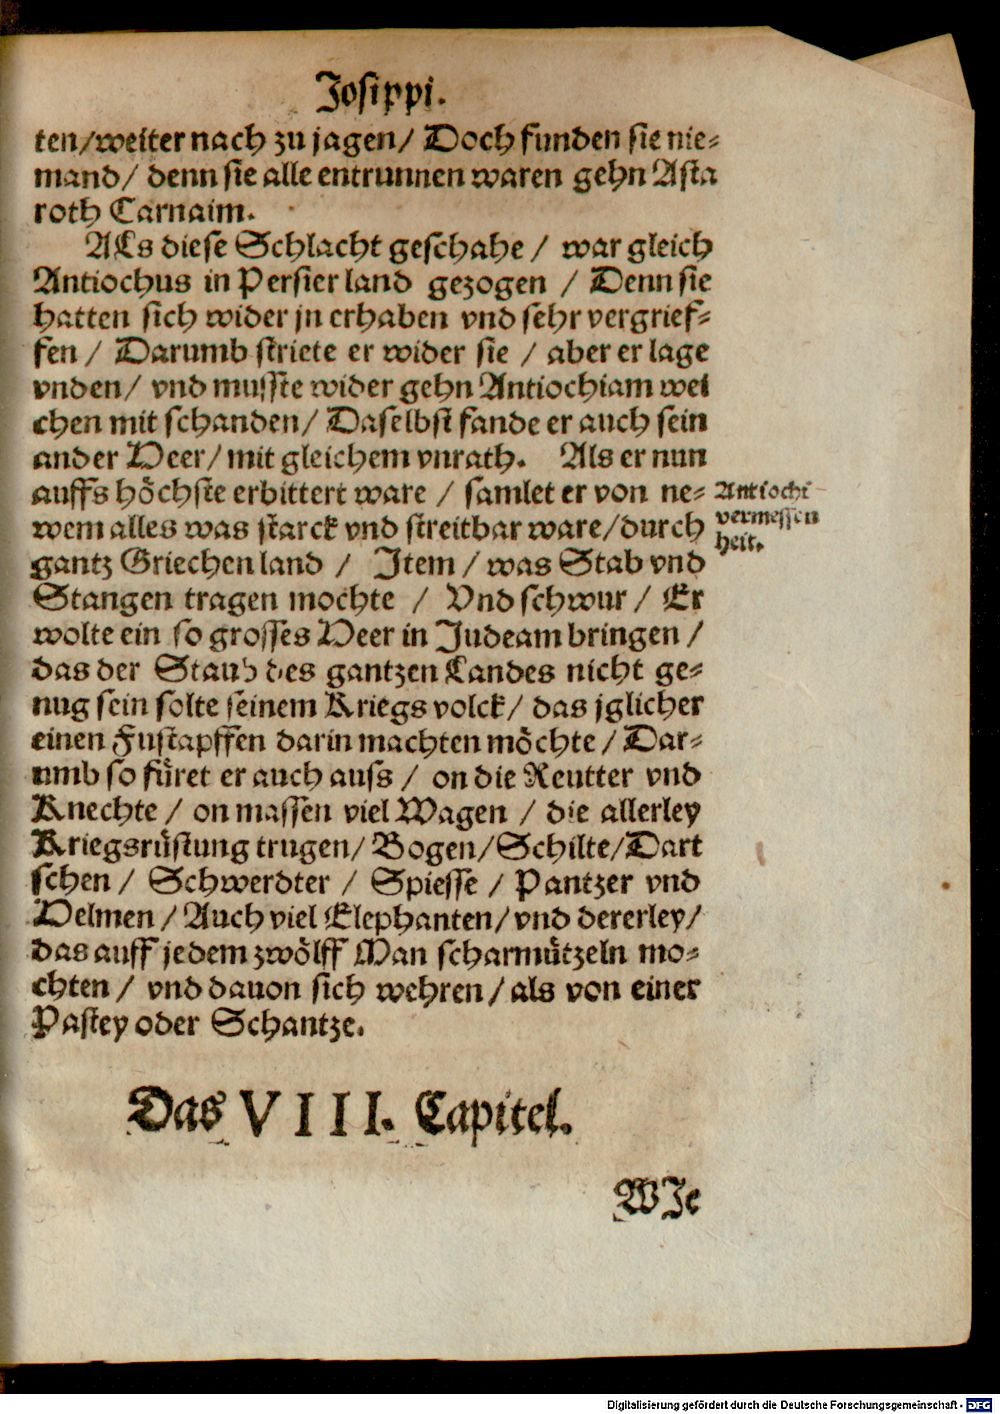 Josippi.
ten/weiter nach zu jagen/ Doch funden sie nie⸗
mand/ denn sie alle entrunnen waren gehn Asta
roth Carnaim.
ALs diese Schlacht geschahe / war gleich
Antiochus in Persier land gezogen / Denn sie
hatten sich wider jn erhaben vnd sehr vergrief⸗
fen / Darumb striete er wider sie / aber er lage
vnden/ vnd musste wider gehn Antiochiam wei
chen mit schanden/ Daselbst fande er auch sein
ander Heer/ mit gleichem vnrath. Als er nun
auffs höchste erbittert ware / samlet er von ne⸗
wem alles was starck vnd streitbar ware/durch
gantz Griechen land / Item / was Stab vnd
Stangen tragen mochte / Vnd schwur / Er
wolte ein so grosses Heer in Judeam bringen /
das der Staub des gantzen Landes nicht ge⸗
nug sein solte seinem Kriegs volck/ das jglicher
einen Fustapffen darin machten möchte / Dar⸗
umb so füret er auch auss / on die Reutter vnd
Knechte / on massen viel Wagen / die allerley
Kriegsrüstung trugen/ Bogen/Schilte/Dart
schen / Schwerdter / Spiesse / Pantzer vnd
Helmen / Auch viel Elephanten/ vnd dererley/
das auff jedem zwölff Man scharmützeln mo⸗
chten / vnd dauon sich wehren / als von einer
Pastey oder Schantze.
Antiochi
vermessen
heit.
Das VIII. Capitel.
WJe
Digitalisierung gefördert durch die Deutsche Forschungsgemeinschaft - DFG